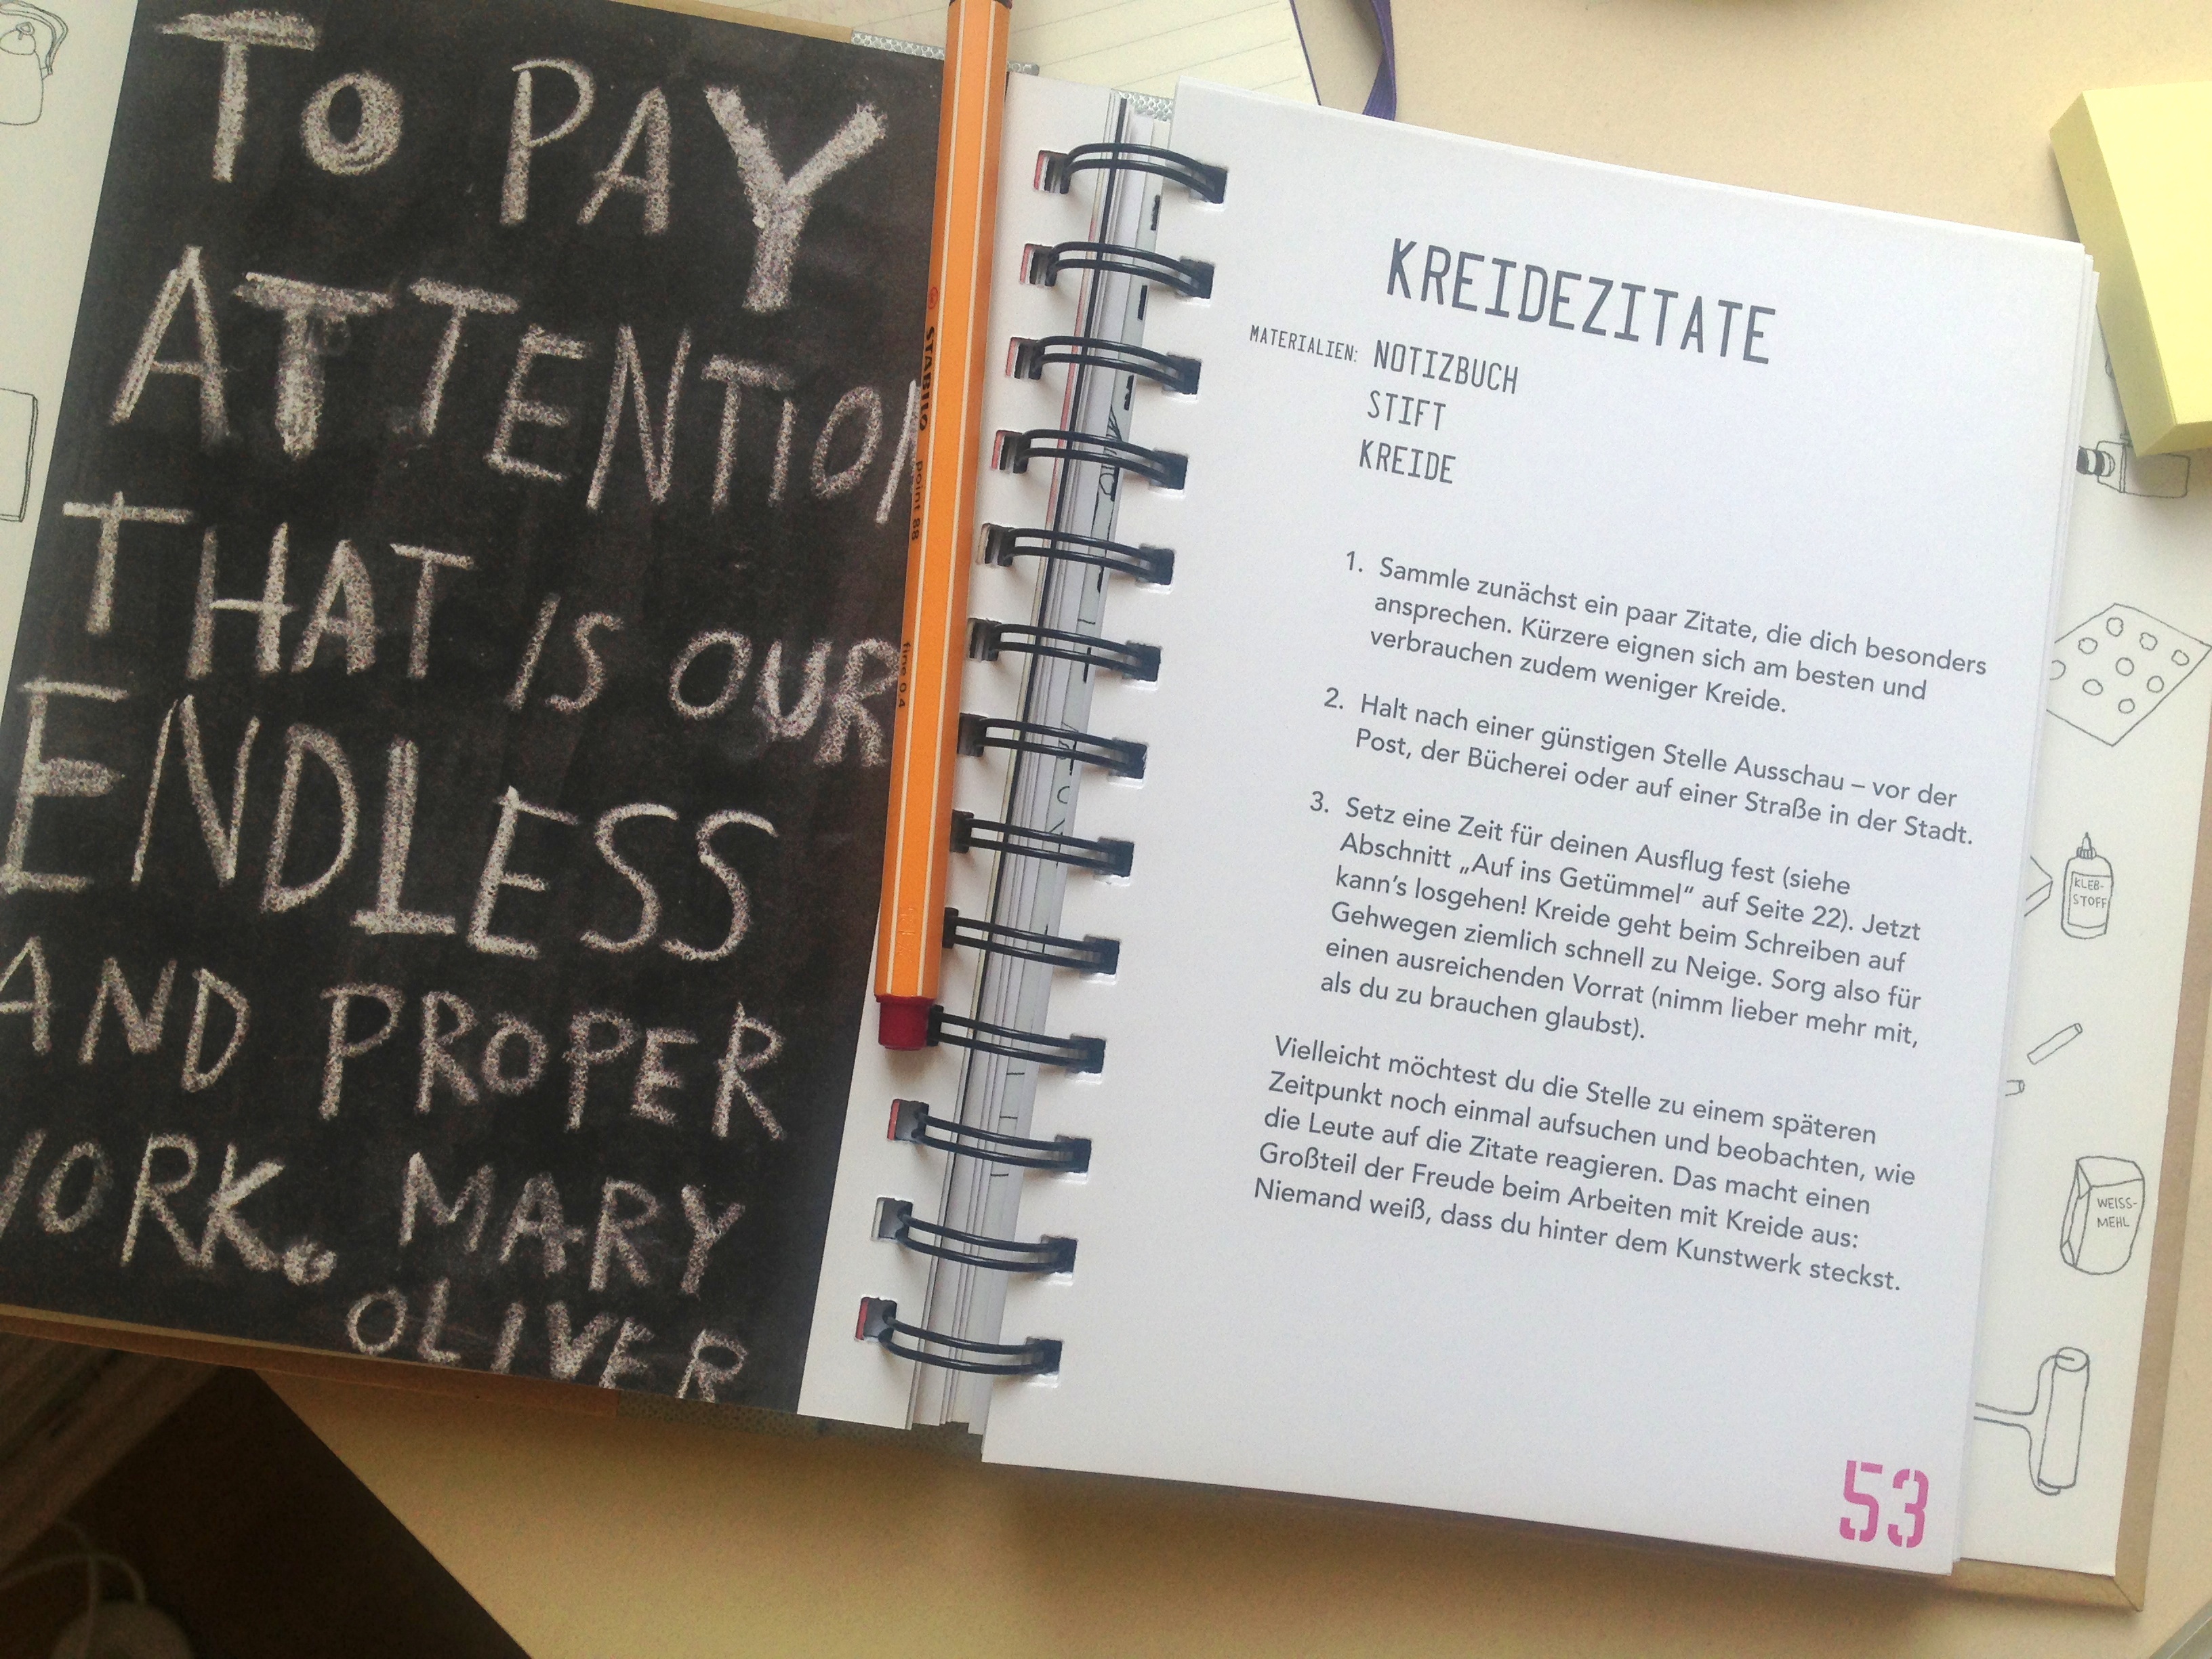 TO PAY
ATTENTION
THAT IS OUR
ENDLESS
AND PROPER
WORK. MARY
OLIVER
STABILO point 88 fine 0.4
KREIDEZITATE
MATERIALIEN: NOTIZBUCH
STIFT
KREIDE
1. Sammle zunächst ein paar Zitate, die dich besonders
ansprechen. Kürzere eignen sich am besten und
verbrauchen zudem weniger Kreide.
2. Halt nach einer günstigen Stelle Ausschau – vor der
Post, der Bücherei oder auf einer Straße in der Stadt.
3. Setz eine Zeit für deinen Ausflug fest (siehe
Abschnitt „Auf ins Getümmel“ auf Seite 22). Jetzt
kann’s losgehen! Kreide geht beim Schreiben auf
Gehwegen ziemlich schnell zu Neige. Sorg also für
einen ausreichenden Vorrat (nimm lieber mehr mit,
als du zu brauchen glaubst).
Vielleicht möchtest du die Stelle zu einem späteren
Zeitpunkt noch einmal aufsuchen und beobachten, wie
die Leute auf die Zitate reagieren. Das macht einen
Großteil der Freude beim Arbeiten mit Kreide aus:
Niemand weiß, dass du hinter dem Kunstwerk steckst.
53
KLEB-
STOFF
WEISS-
MEHL